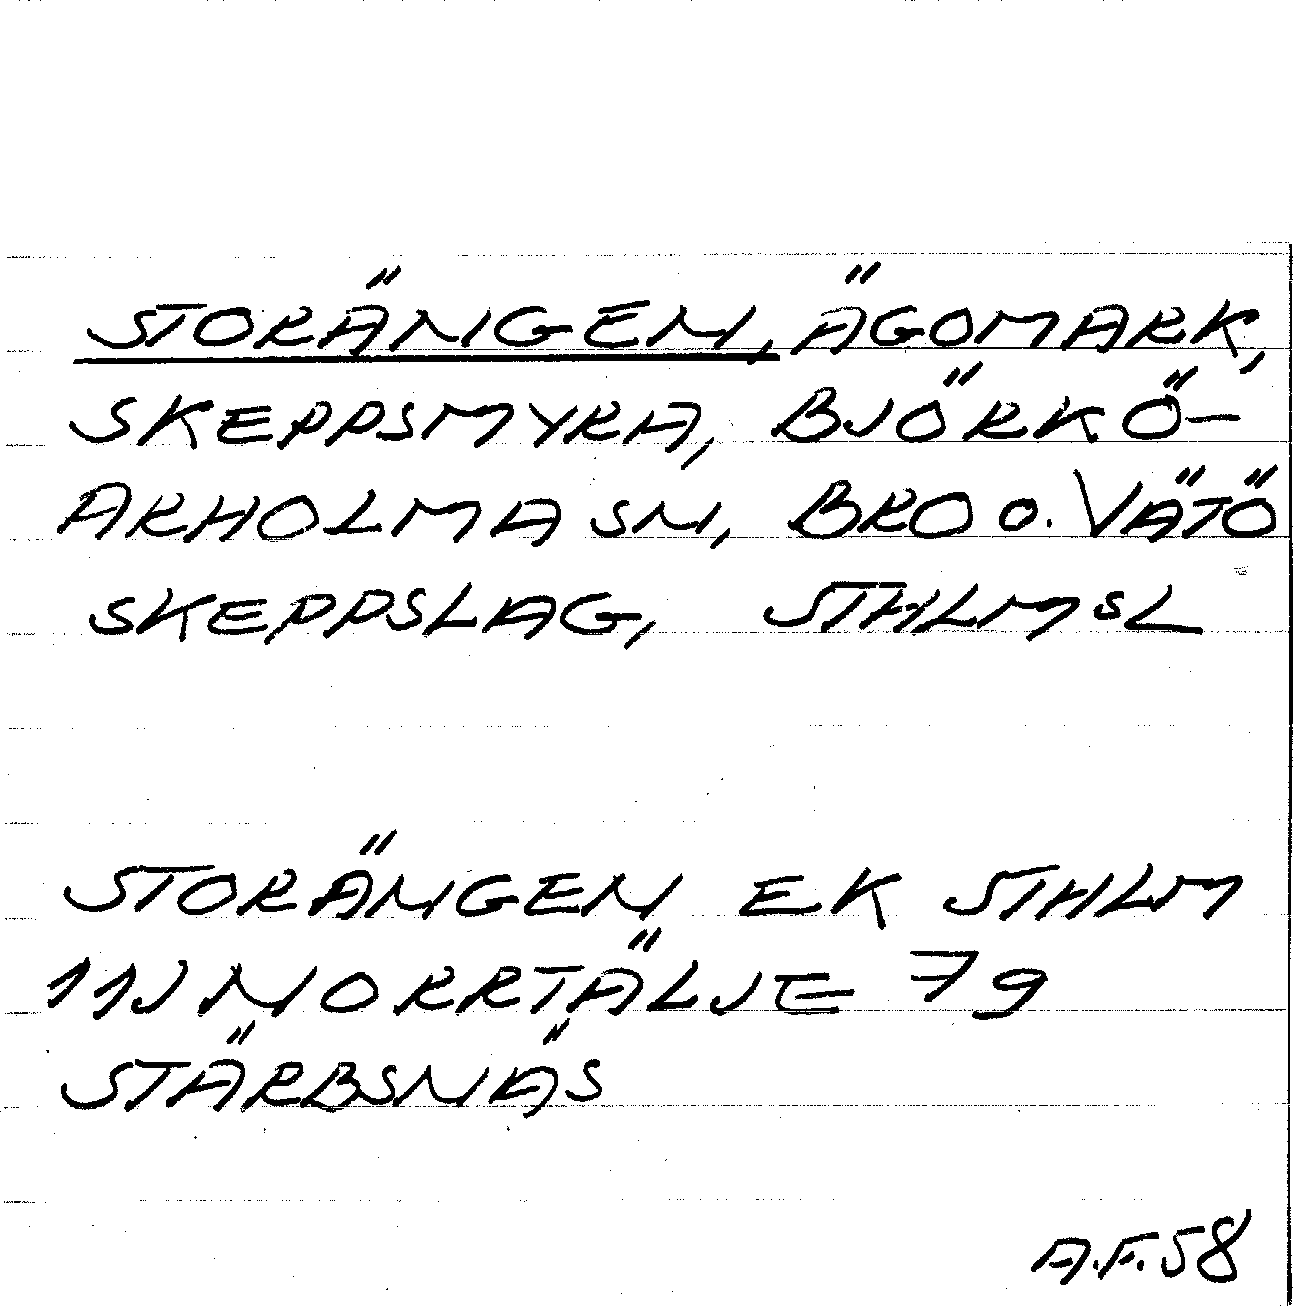 STORÄNGEN, ÄGOMARK,
SKEPPSMYRA, BJÖRKÖ-
ARHOLMA SN, BRO O. VÄTÖ
SKEPPSLAG, STHLMSL
STORÄNGEN EK STHLM
11J NORRTÄLJE 79
STÄRBSNÄS
A.F.58